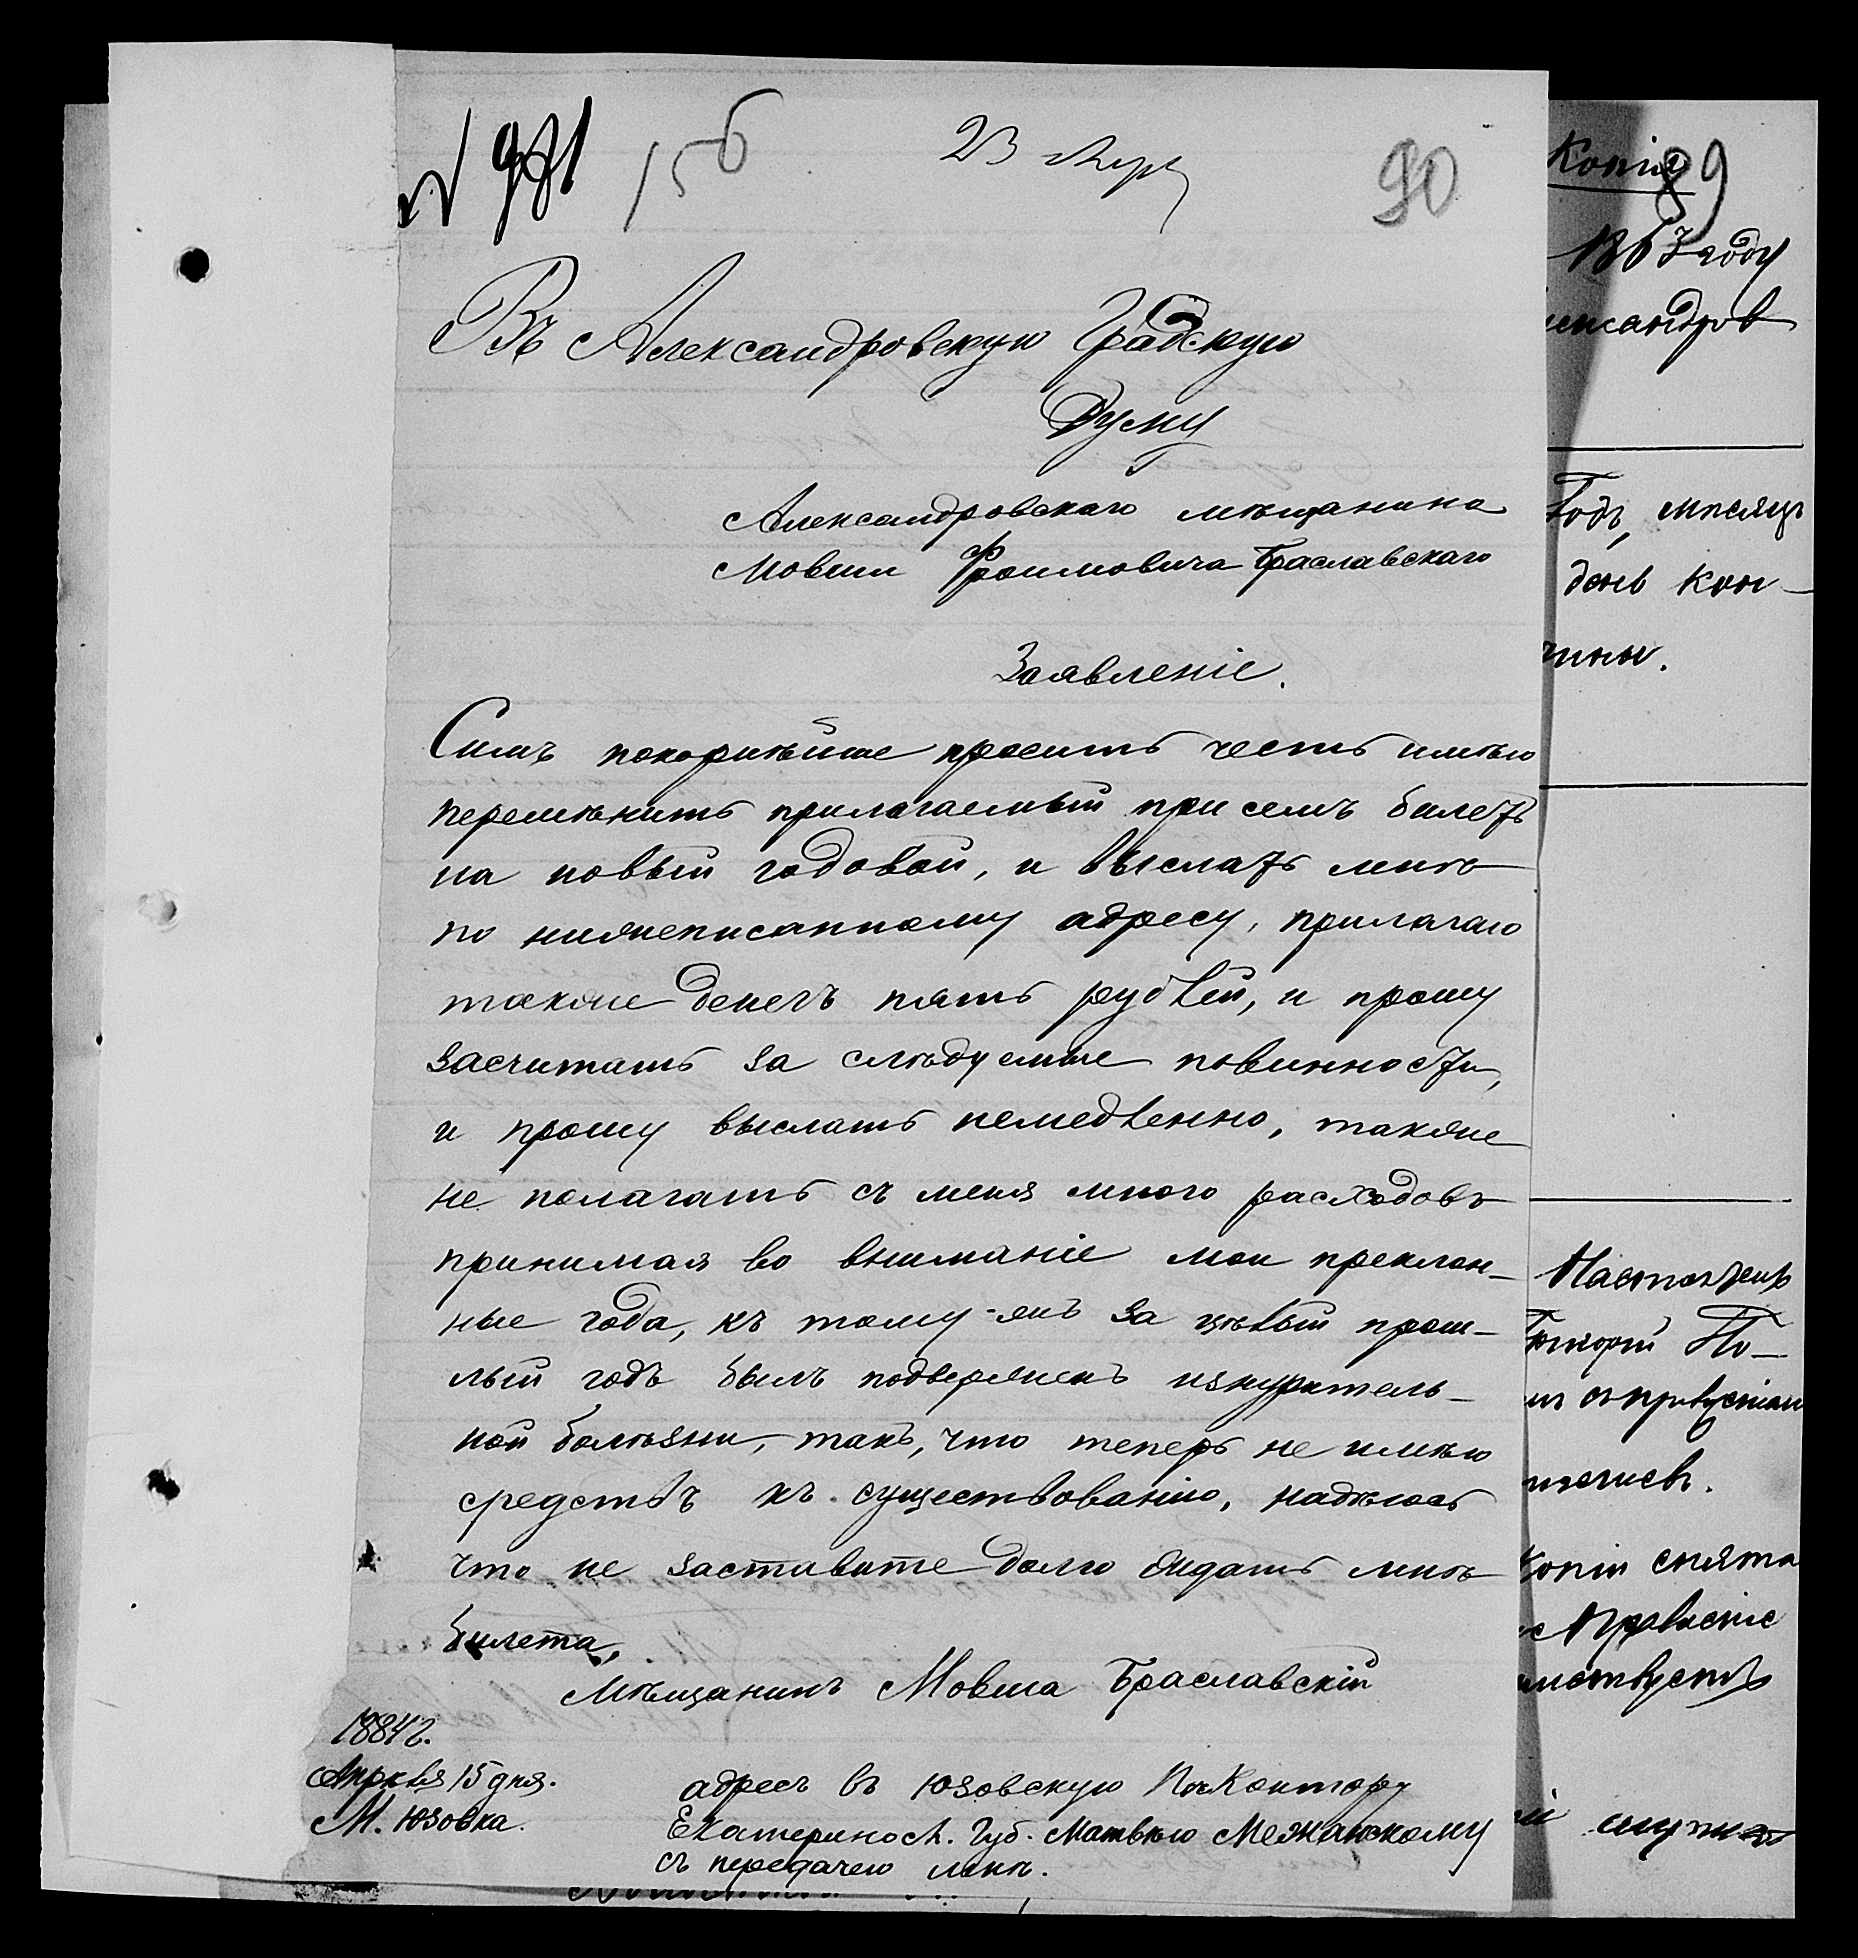 № 981 156 23 Апр 90
Въ Александровскую Градскую
Думу
Александровскаго мѣщанина
Мовши Фроимовича Браславскаго
Заявленіе.
Симъ покорнѣйше просить честь имѣю
перемѣнить прилагаемый при семъ билетъ
на новый годовой, и выслать мнѣ
по нижеписанному адресу, прилагаю
также денегъ пять рублей, и прошу
засчитать за слѣдуемые повинности,
и прошу выслать немедленно, также
не полагать съ меня много расходовъ
принимая во вниманіе мои преклон-
ные года, къ тому-жъ за цѣлый прош-
лый годъ былъ подверженъ изнуритель-
ной болѣзни, такъ, что теперь не имѣю
средствъ къ существованію, надѣюсь
что не заставите долго ждать мнѣ
билета,
Мѣщанинъ Мовша Браславскій
1884 г.
Апрѣля 15 дня.
М. Юзовка.
адресъ въ Юзовскую П. Контору
Екатериносл. Губ. Матвѣю Межанскому
съ передачею мнѣ.
Копія 89
186 году
ександров
Годъ, мѣсяцъ
день кон-
чины.
По-
Копія снята